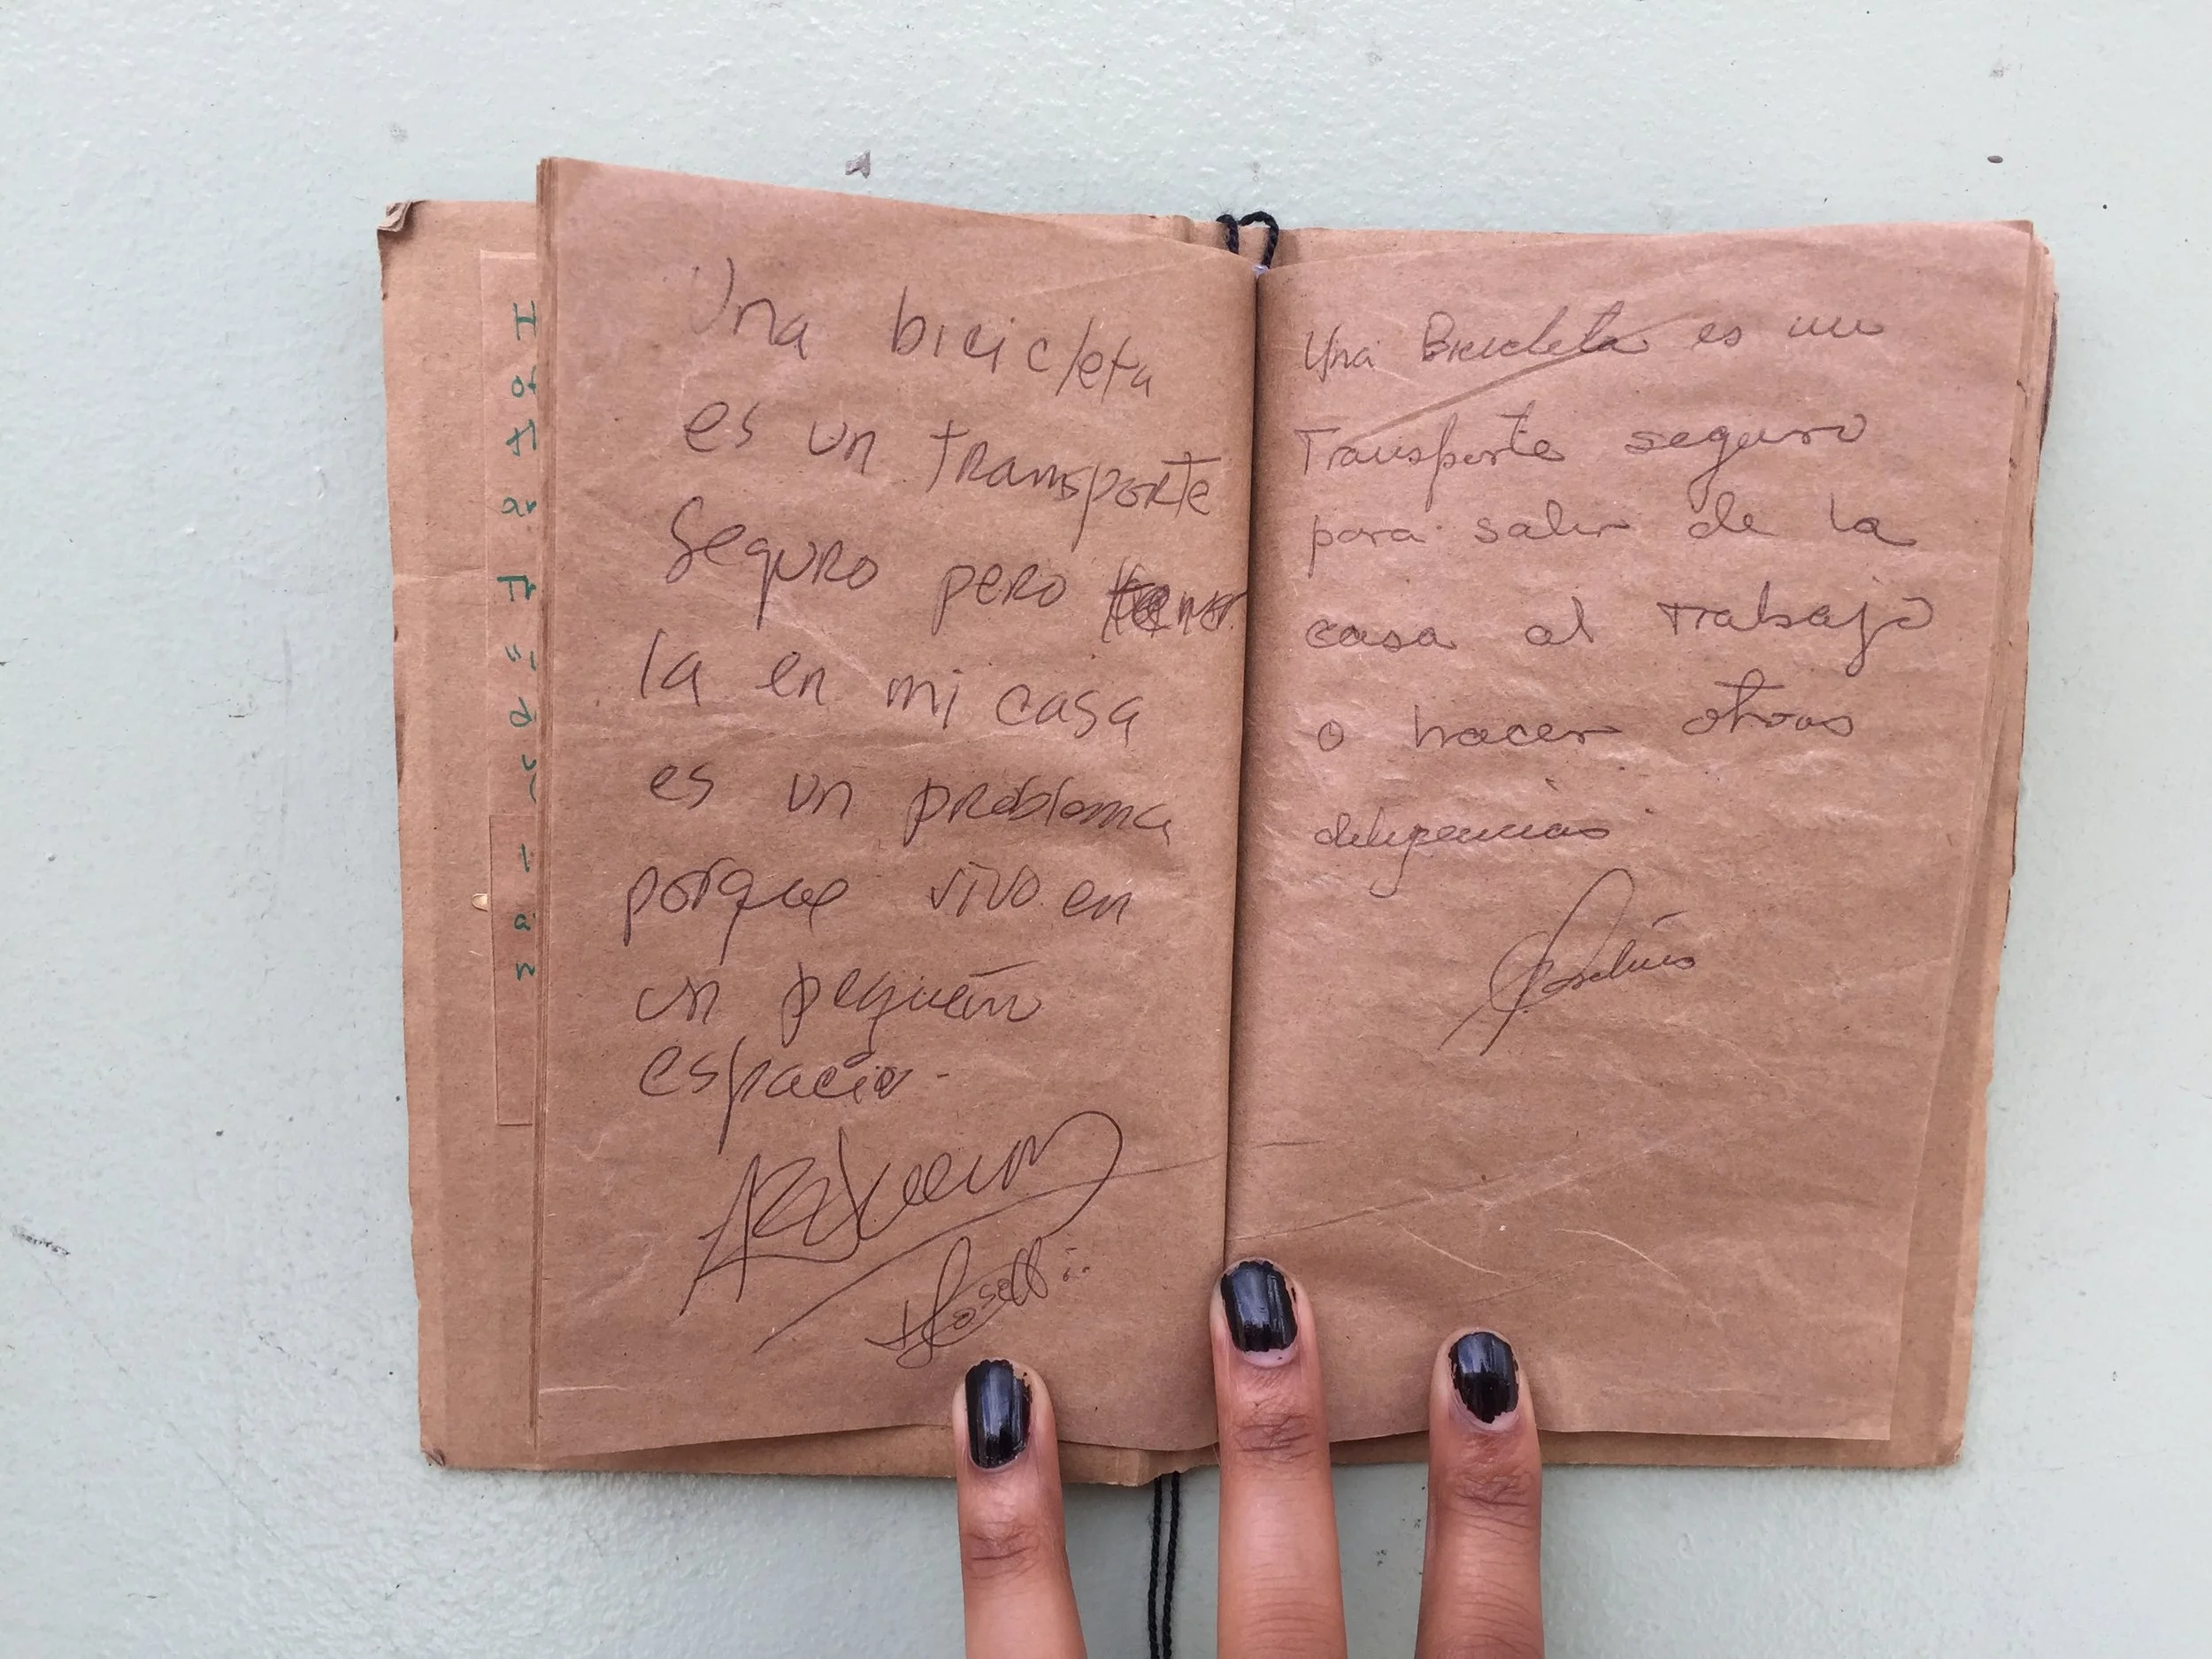 Una bicicleta
es un transporte
seguro pero tener
la en mi casa
es un problema
porque vivo en
un pequeño
espacio.
Una Bicicleta es un
Transporte seguro
para salir de la
casa al trabajo
o hacer otras
diligencias